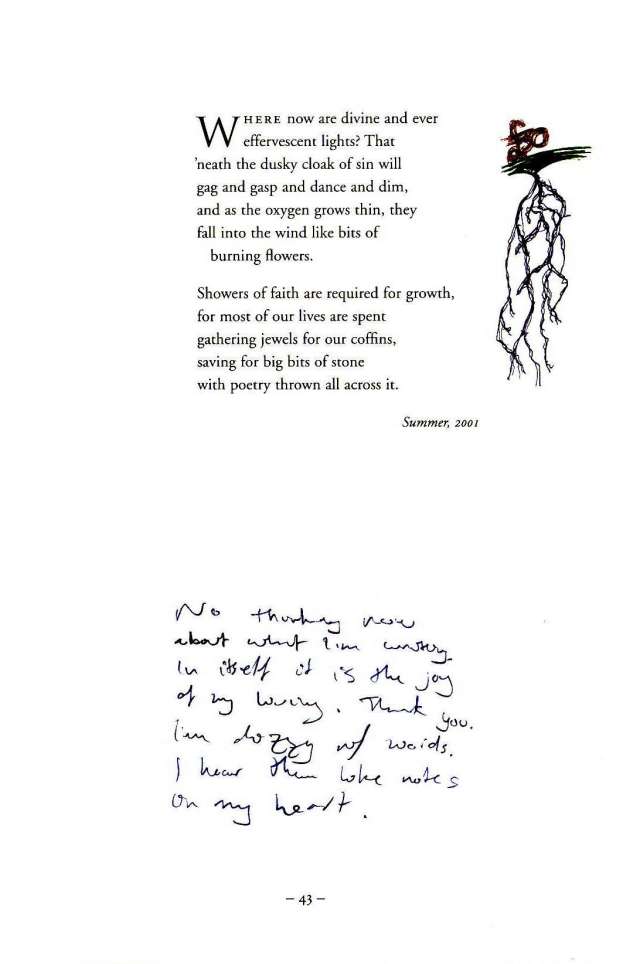 WHERE now are divine and ever
effervescent lights? That
'neath the dusky cloak of sin will
gag and gasp and dance and dim,
and as the oxygen grows thin, they
fall into the wind like bits of
burning flowers.
Showers of faith are required for growth,
for most of our lives are spent
gathering jewels for our coffins,
saving for big bits of stone
with poetry thrown all across it.
Summer, 2001
No thinking now
about what I'm writing.
In itself it is the joy
of my living. Thank you.
I'm dizzy w/ words.
I hear them like notes
on my heart.
- 43 -